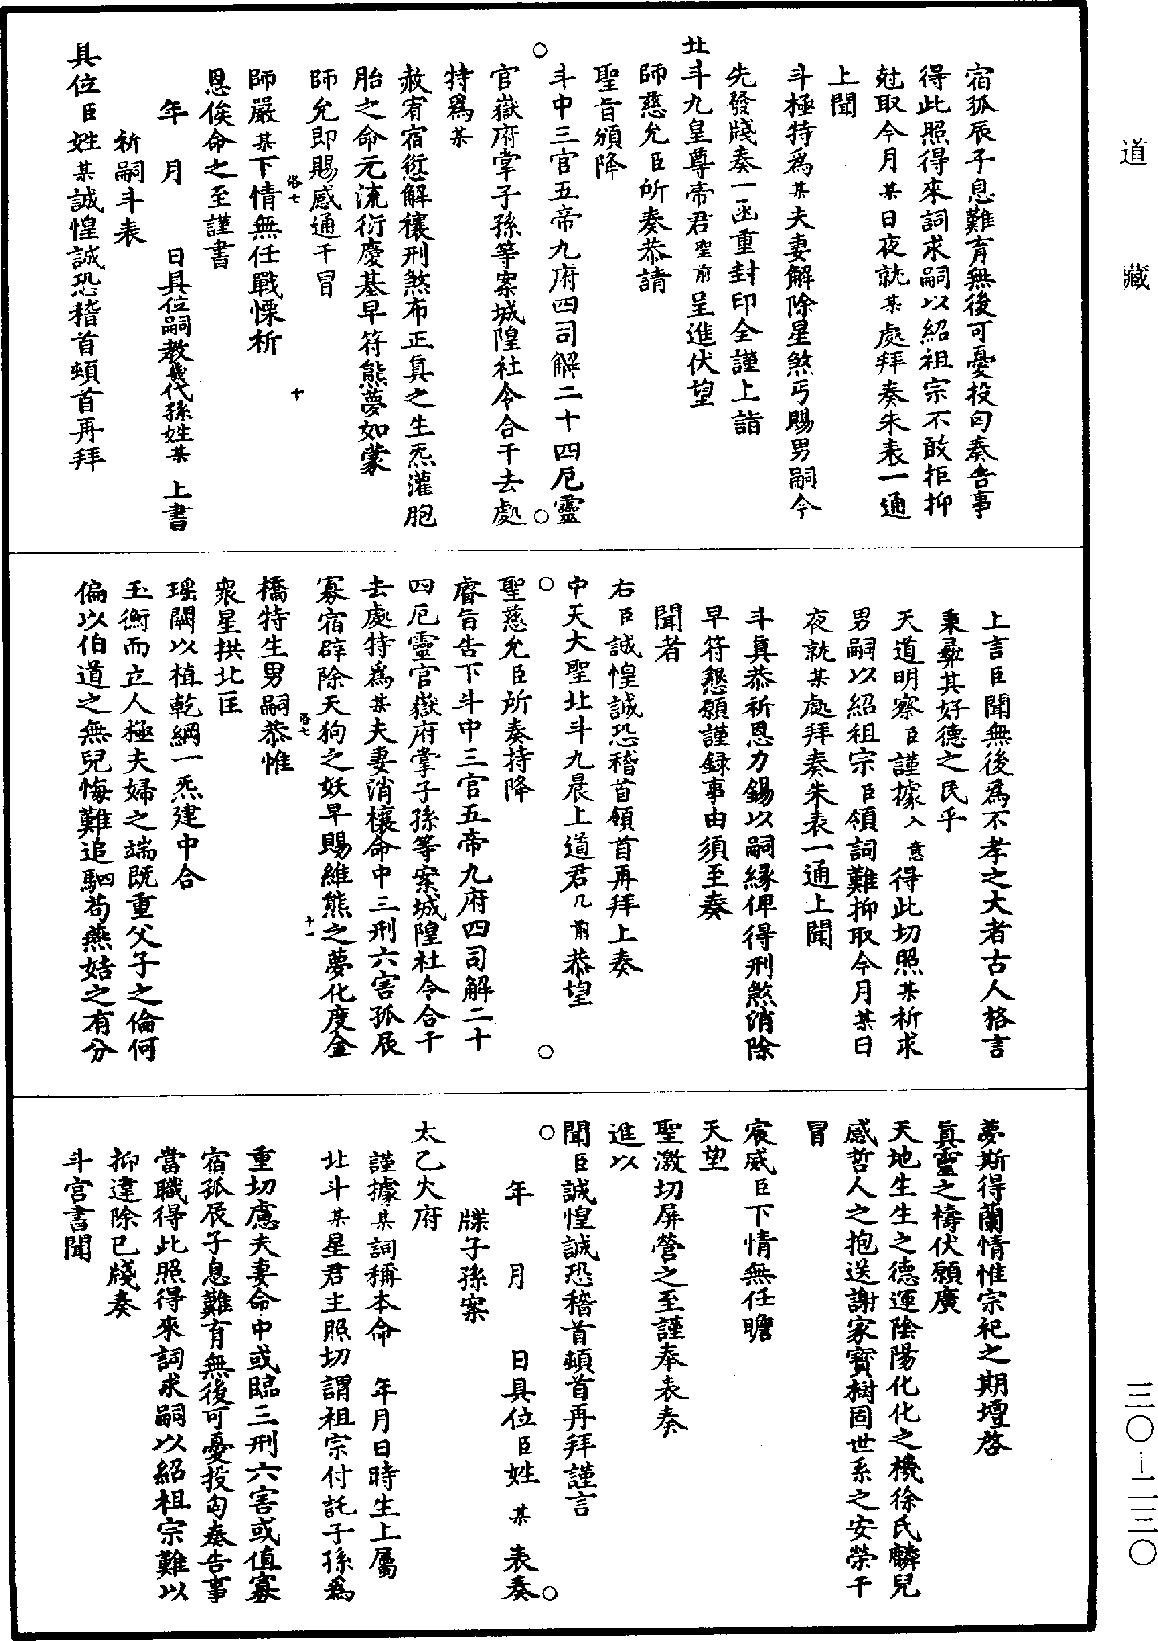 道藏
宿孤辰子息難育無後可憂投匄奏告事
得此照得來詞求嗣以紹祖宗不敢拒抑
兙取今月某日夜就某處拜奏朱表一通
上聞
斗極特為某夫妻解除星煞丐賜男嗣今
先發牋奏一函重封印全謹上詣
北斗九皇尊帝君聖前呈進伏望
師慈允臣所奏恭請
聖旨頒降
斗中三官五帝九府四司解二十四厄靈
官嶽府掌子孫等案城隍社令合干去處
特為某
赦宥宿愆解禳刑煞布正真之生炁灌胞
胎之命元流衍慶基早符熊夢如蒙
師允即賜感通干冒
師嚴某下情無任戰慄祈
恩俟命之至謹書
年 月 日具位嗣教幾代孫姓某 上書
祈嗣斗表
具位臣姓某誠惶誠恐稽首頓首再拜
上言臣聞無後為不孝之大者古人格言
秉彝其好德之民乎
天道明察臣謹據入意得此切照某祈求
男嗣以紹祖宗臣領詞難抑取今月某日
夜就某處拜奏朱表一通上聞
斗真恭祈恩力錫以嗣緣俾得刑煞消除
早符懇願謹錄事由須至奏
聞者
右臣誠惶誠恐稽首頓首再拜上奏
中天大聖北斗九晨上道君几前恭望
聖慈允臣所奏特降
睿旨告下斗中三官五帝九府四司解二十
四厄靈官嶽府掌子孫等案城隍社令合干
去處特為某夫妻消禳命中三刑六害孤辰
寡宿辟除天狗之妖早賜維熊之夢化度金
橋特生男嗣恭惟
眾星拱北匡
瑤闕以植乾綱一炁建中合
玉衡而立人極夫婦之端既重父子之倫何
偏以伯道之無兒悔難追駟苟燕姞之有分
夢斯得蘭情惟宗祀之期壇啓
真靈之禱伏願廣
天地生生之德運陰陽化化之機徐氏麟兒
感哲人之抱送謝家寶樹固世系之安榮干
冒
宸威臣下情無任瞻
天望
聖激切屏營之至謹奉表奏
進以
聞臣誠惶誠恐稽首頓首再拜謹言
年 月 日具位臣姓某 表奏
牒子孫案
太乙火府
謹據某詞稱本命 年月日時生上屬
北斗某星君主照切謂祖宗付託子孫為
重切慮夫妻命中或臨三刑六害或值寡
宿孤辰子息難育無後可憂投匄奏告事
當職得此照得來詞求嗣以紹祖宗難以
抑違除已牋奏
斗宮書聞
三〇—二三〇